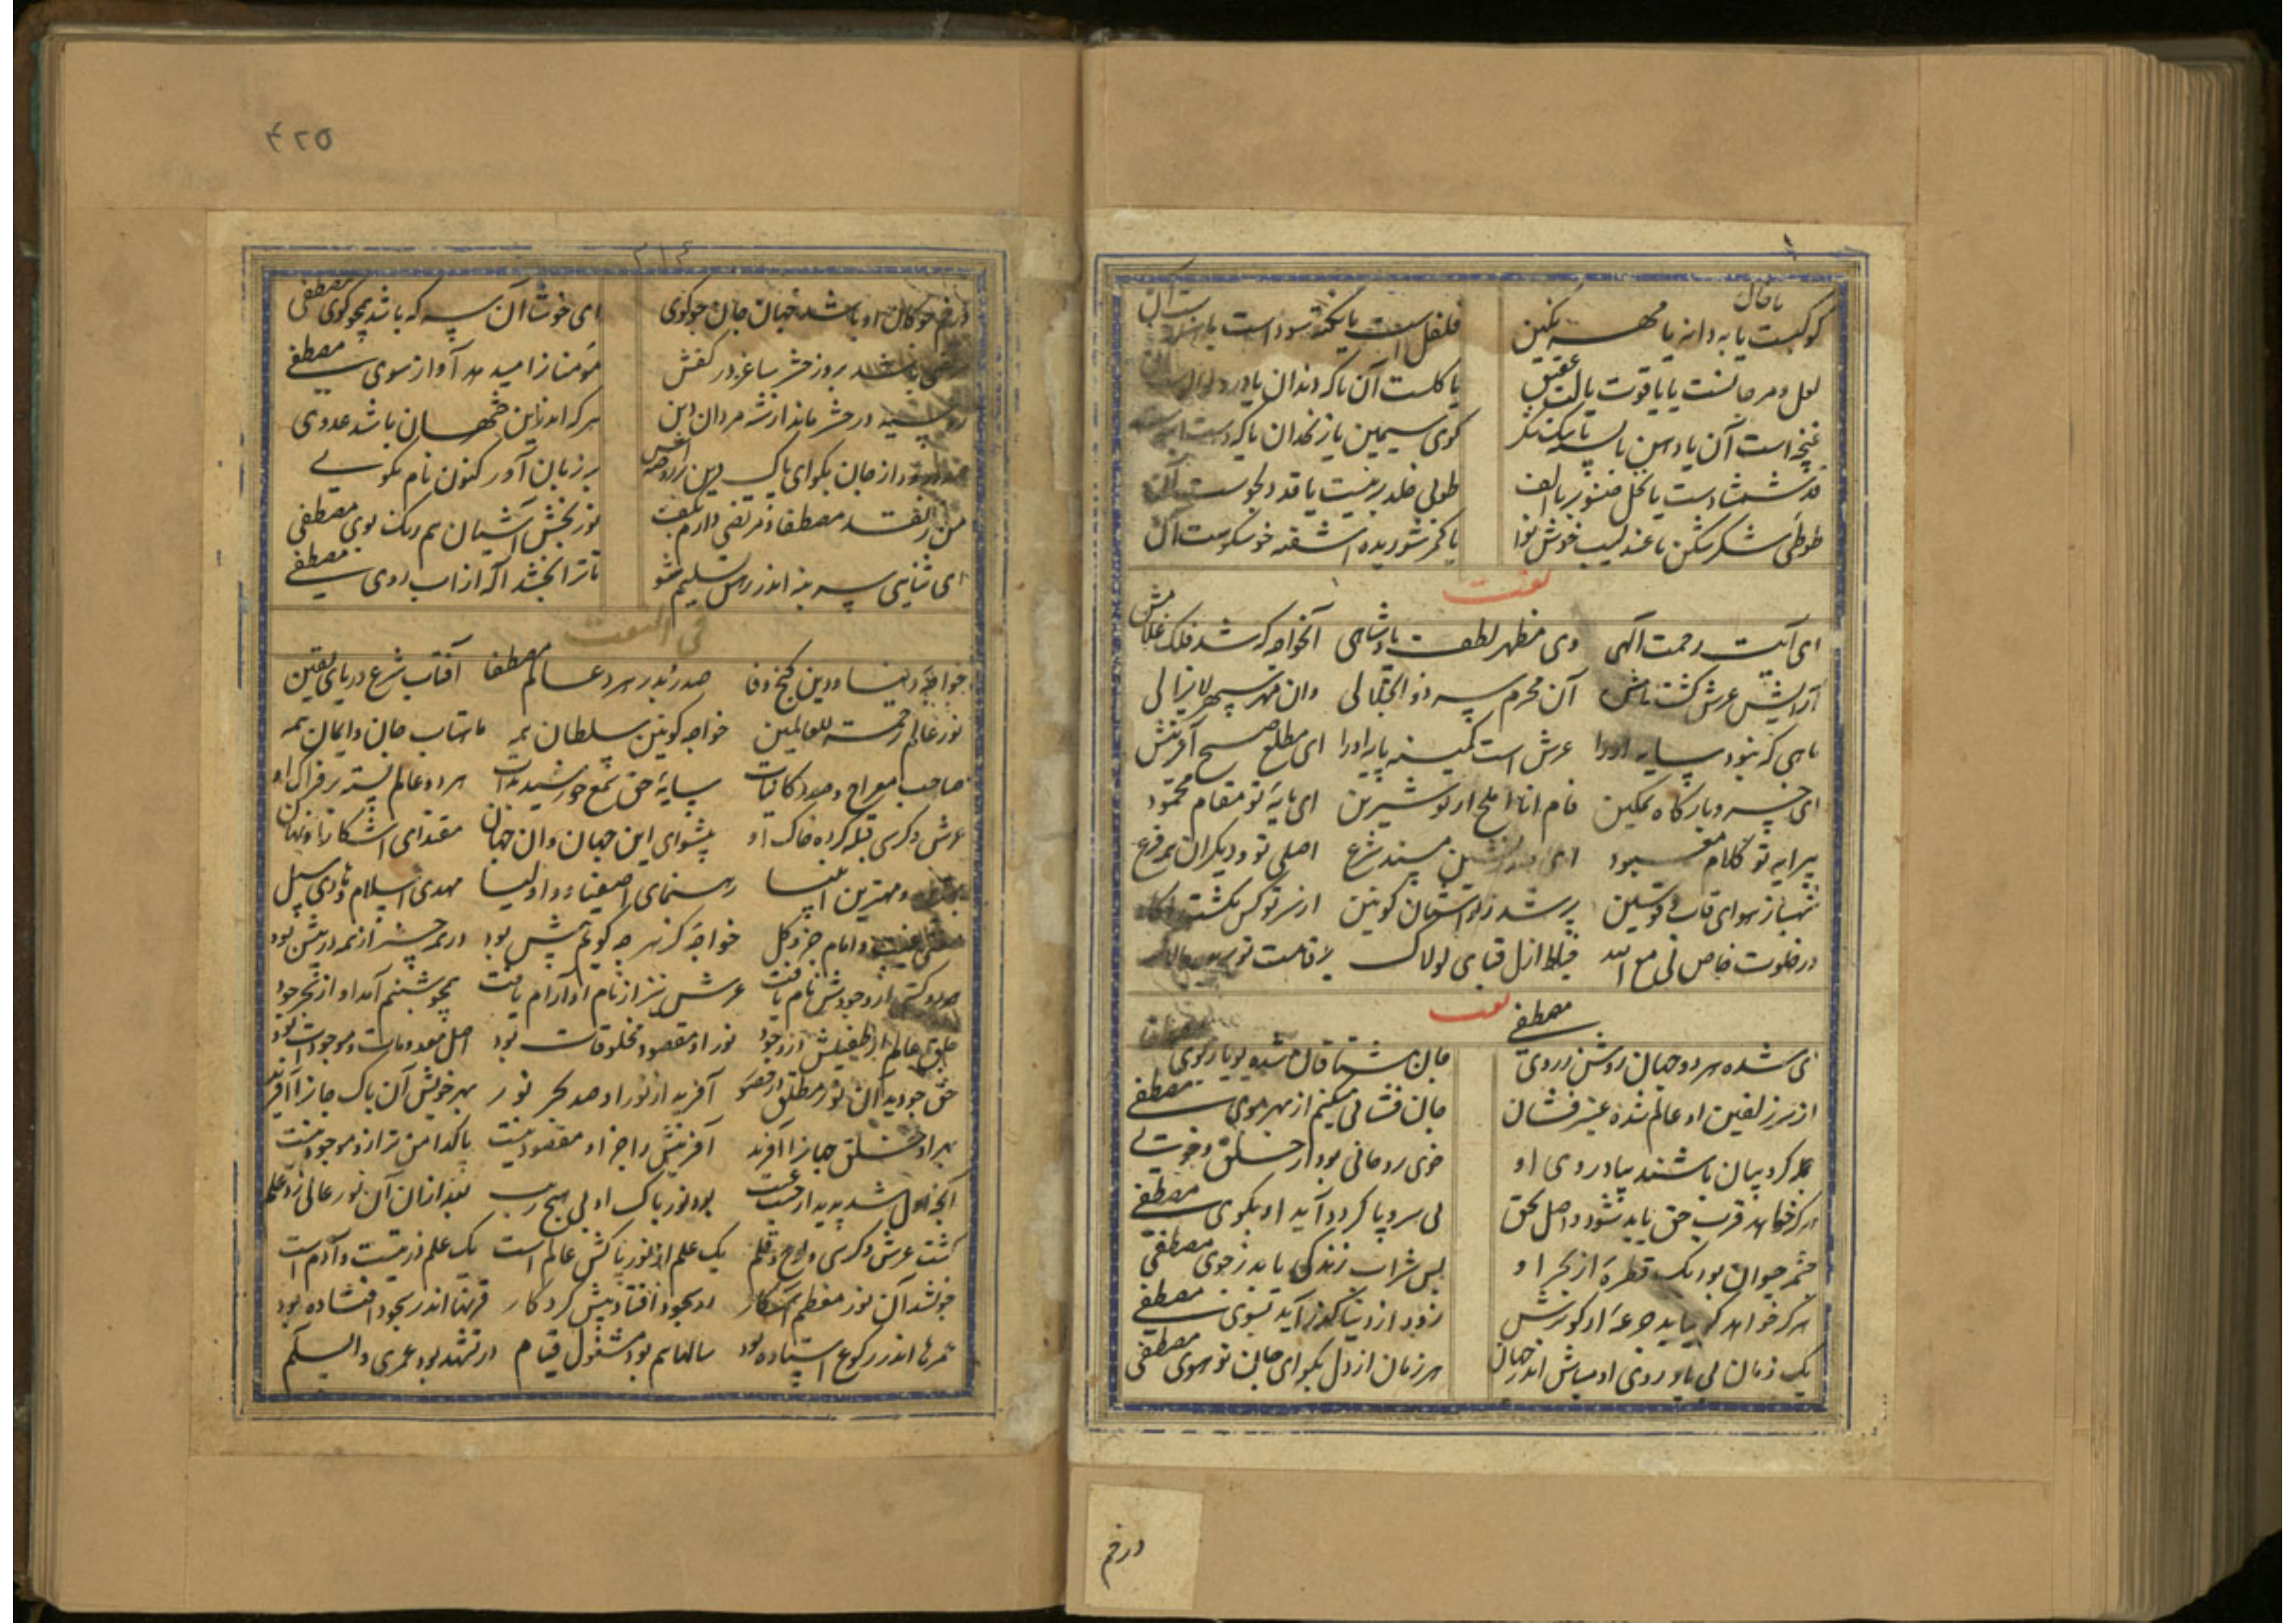 یا خال
کوکبست یا به دانه یا مهر نگین
فلفل است یا نکته سود است یا
لعل و مرجانست یا یاقوت یا لب عقیق
یا کلست آن یا که دندان یا در
غنچه است آن یا دهن یا پسته یا تنگ شکر
کوی سیمین یا زنخدان یا که
قد شمشادست یا نخل صنوبر یا الف
طوبی خلد برینست یا قد دلجوست آن
طوطی شکر شکن یا عندلیب خوش نوا
یا کمر شوریده آشفته خوشکوست آن
نعت
ای آیت رحمت الهی وی مظهر لطف پادشاهی آنخواجه که شد فلک غلامش
آرایش عرش کشت نامش آن محرم سر ذوالجلالی وان مهر سپهر لایزالی
ماهی که نبود سایه اورا عرش است کمینه پایه اورا ای مطلع صبح آفرینش
ای خسرو بارکاه تمکین نام انا املح از تو شیرین ای پایه تو مقام محمود
پیرایه تو کلام معبود ای مسند شرع اصلی تو و دیکران همه فرع
شهباز هوای قاب قوسین پر شد ز تو آستان کونین از سر تو کس نکشت
در خلوت خاص لی مع الله خیاط ازل قبای لولاک بر قامت تو
نعت مصطفی
ای شده هر دو جهان روشن ز روی
جان مشتاقان شده پویا بکوی
از سر زلفین او عالم شده عنبر فشان
جان فشانی میکنم از بهر موی مصطفی
جمله کروبیان باشند پیادر روی او
خوی روحانی بود از خلق و خوی
هر که خواهد قرب حق باید شود واصل بحق
بی سر و پا کردد آید او بکوی مصطفی
چشمه حیوان بود یک قطره از بحر او
بس شراب زندکی یابد ز جوی مصطفی
هر که خواهد کو بیاید جرعه از کوثرش
زود از دنیا کذر آید بسوی مصطفی
یک زمان بی یاد روی او مباش اندر جهان
هر زمان از دل بکو ای جان تو هوی مصطفی
درخم
۴۲۵
۳۱۴
درخم چوکان او باشد جهان جان چو کوی
ای خوشا آن سر که باشد همچو کوی مصطفی
باشد بروز حشر ساغر در کفش
مؤمنا زامید هر آواز سوی مصطفی
در حشر ماند از شه مردان دین
هرکه اندر این جهان باشد عدوی
از جان بکو ای پاک دین
بر زبان آور کنون نام نکویی
من ز نقد مصطفا و مرتضی دارم بکف
نوربخش آشیان هم رنک بوی مصطفی
ای ثنایی سر بنه اندر رهش تسلیم شو
تا ترا بخشد اله از آب روی مصطفی
فی النعت
خواجه دنیا و دین کنج وفا صدر و بدر هر دو عالم مصطفا آفتاب شرع دریای یقین
نور عالم رحمة للعالمین خواجه کونین سلطان همه ماهتاب جان و ایمان همه
صاحب معراج و صدر کاینات سایه حق شمع خورشید ذات هر دو عالم بسته بر فتراک او
عرش و کرسی قبله کرده خاک او پیشوای این جهان و آن جهان مقتدای آشکارا و نهان
و مهترین انبیا رهنمای اصفیا و اولیا مهدی اسلام و هادی سبل
مفتی غیب و امام جزو کل خواجه کز هر چه کویم بیش بود در همه چیز از همه در پیش بود
از وجودش نام یافت عرش نیز از نام او آرام یافت همچو شبنم آمد او از بحر جود
خلق عالم از طفیلش در وجود نور او مقصود مخلوقات بود اصل معدومات و موجودات بود
حق چو دید آن نور مطلق در حضور آفرید از نور او صد بحر نور بهر خویش آن پاک جان را آفرید
بهر او خلق جهان را آفرید آفرینش را جز او مقصود نیست پاکدامن تر ازو موجود نیست
آنچه اول شد پدید از جیب غیب بود نور پاک او بی هیچ ریب بعد از آن آن نور عالی زد علم
کشت عرش و کرسی و لوح و قلم یک علم از نور پاکش عالم است یک علم ذریتست و آدم است
چون شد آن نور معظم آشکار در سجود افتاد پیش کردکار قرنها اندر سجود افتاده بود
عمرها اندر رکوع استاده بود سالها هم بود مشغول قیام در تشهد بود عمری و السلام